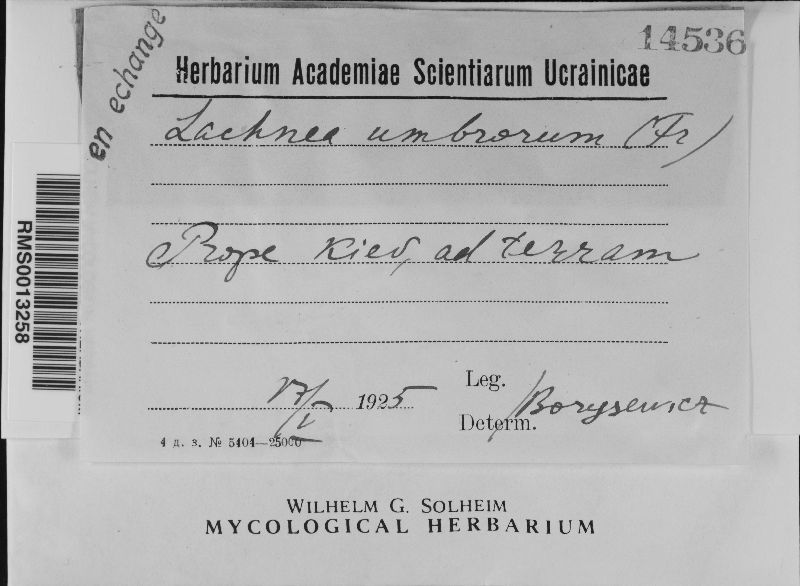 14536
en echange
Herbarium Academiae Scientiarum Ucrainicae
Lachnea umbrorum (Fr)
Prope Kiev, ad terram
17/V 1925
Leg.
Borysewicz
Determ.
4 д. з. № 5404—25000
RMS0013258
WILHELM G. SOLHEIM
MYCOLOGICAL HERBARIUM